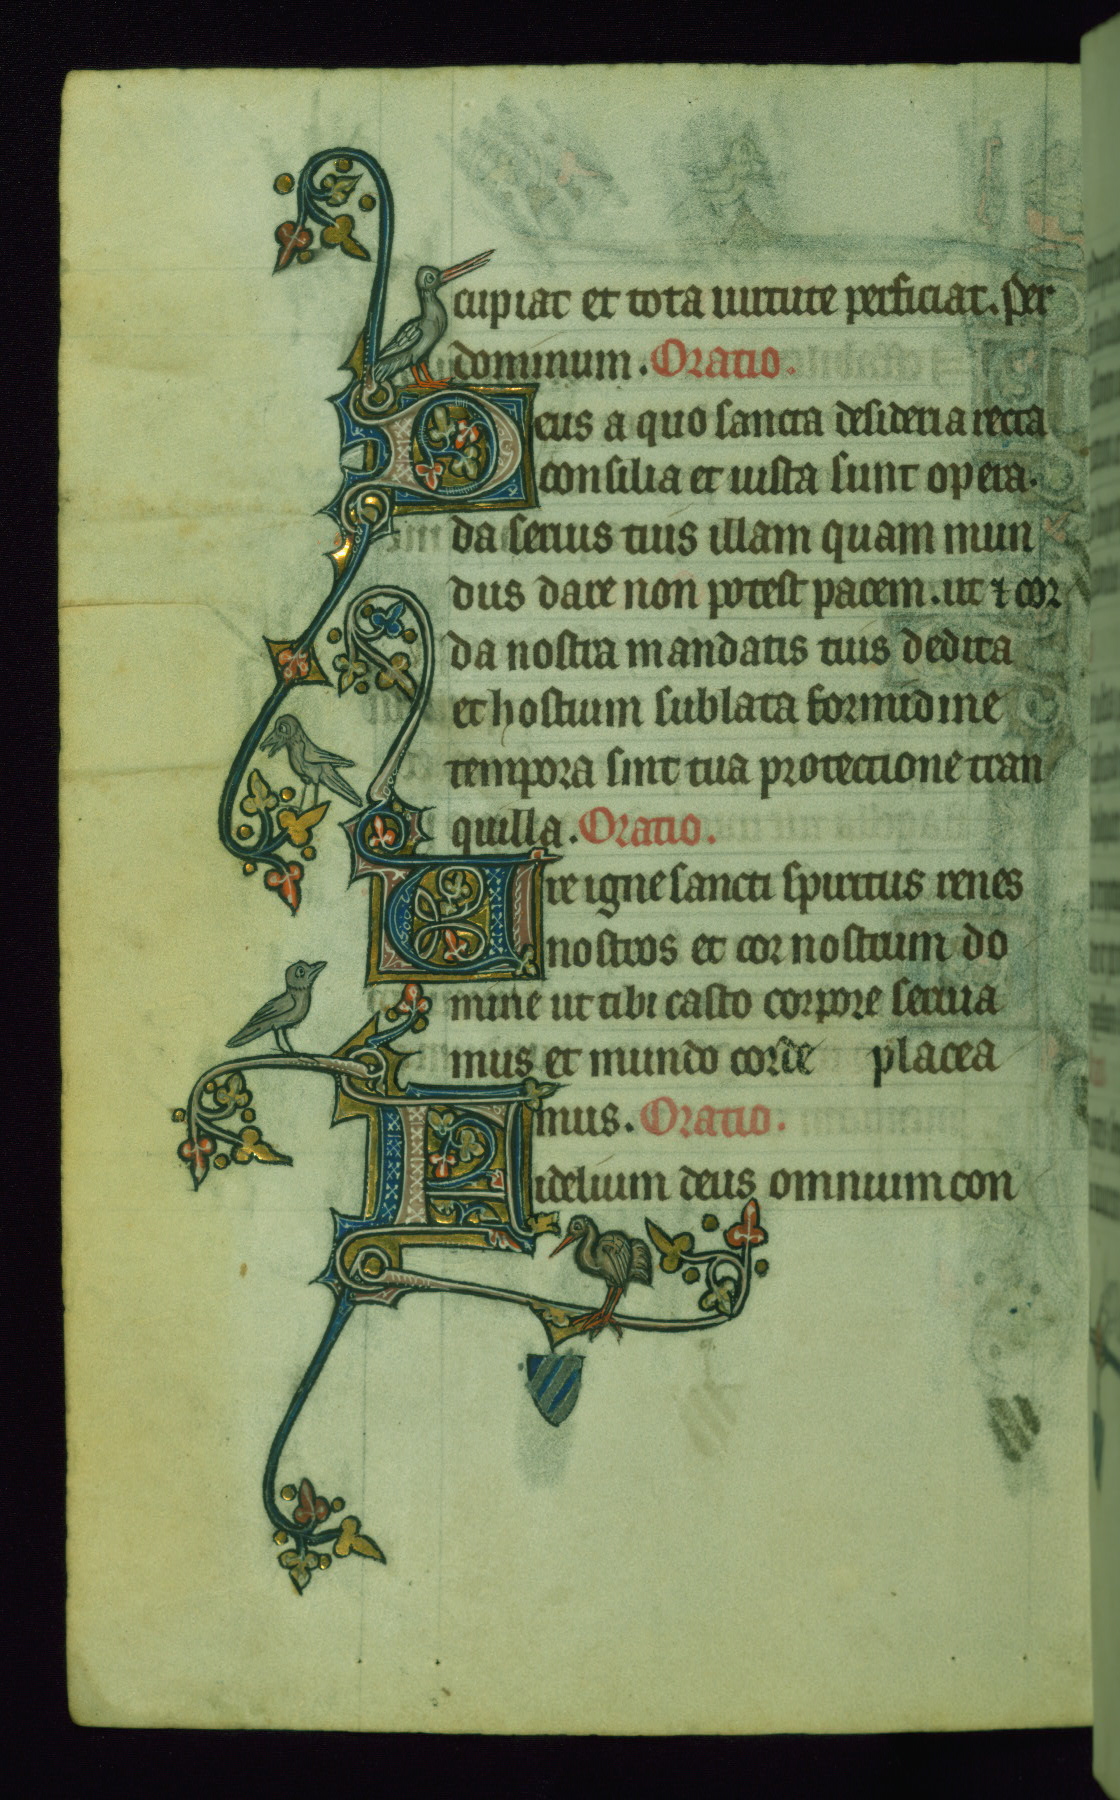 cupiat et tota uirtute perficiat. Per
dominum. Oratio.
Deus a quo sancta desideria recta
consilia et iusta sunt opera.
da seruis tuis illam quam mun
dus dare non potest pacem. ut ⁊ cor
da nostra mandatis tuis dedita
et hostium sublata formidine
tempora sint tua protectione tran
quilla. Oratio.
Ure igne sancti spiritus renes
nostros et cor nostrum do
mine ut tibi casto corpore serua
mus et mundo corde placea
mus. Oratio.
Fidelium deus omnium con